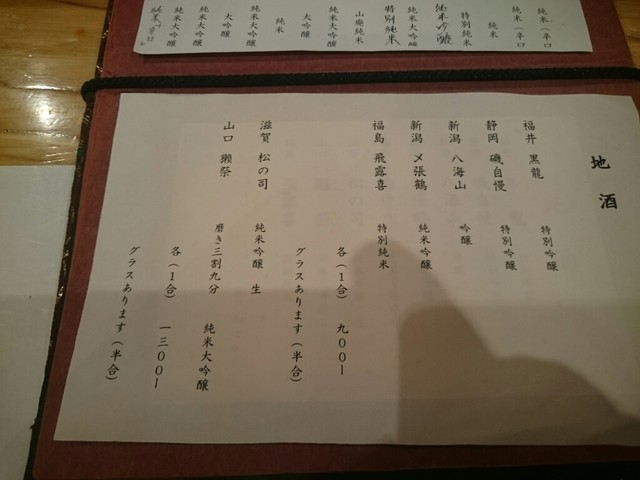 純米(辛口
純米(辛口
純米
特別純米
純米吟醸
純米大吟醸
特別純米
山廃純米
純米大吟醸
大吟醸
純米
純米大吟醸
大吟醸
純米大吟醸
純米大吟醸
地酒
福井 黒龍 特別吟醸
静岡 磯自慢 特別吟醸
新潟 八海山 吟醸
新潟 〆張鶴 純米吟醸
福島 飛露喜 特別純米
各(1合) 九〇〇ー
グラスあります(半合)
滋賀 松の司 純米吟醸 生
山口 獺祭 磨き三割九分 純米大吟醸
各(1合) 一三〇〇ー
グラスあります(半合)